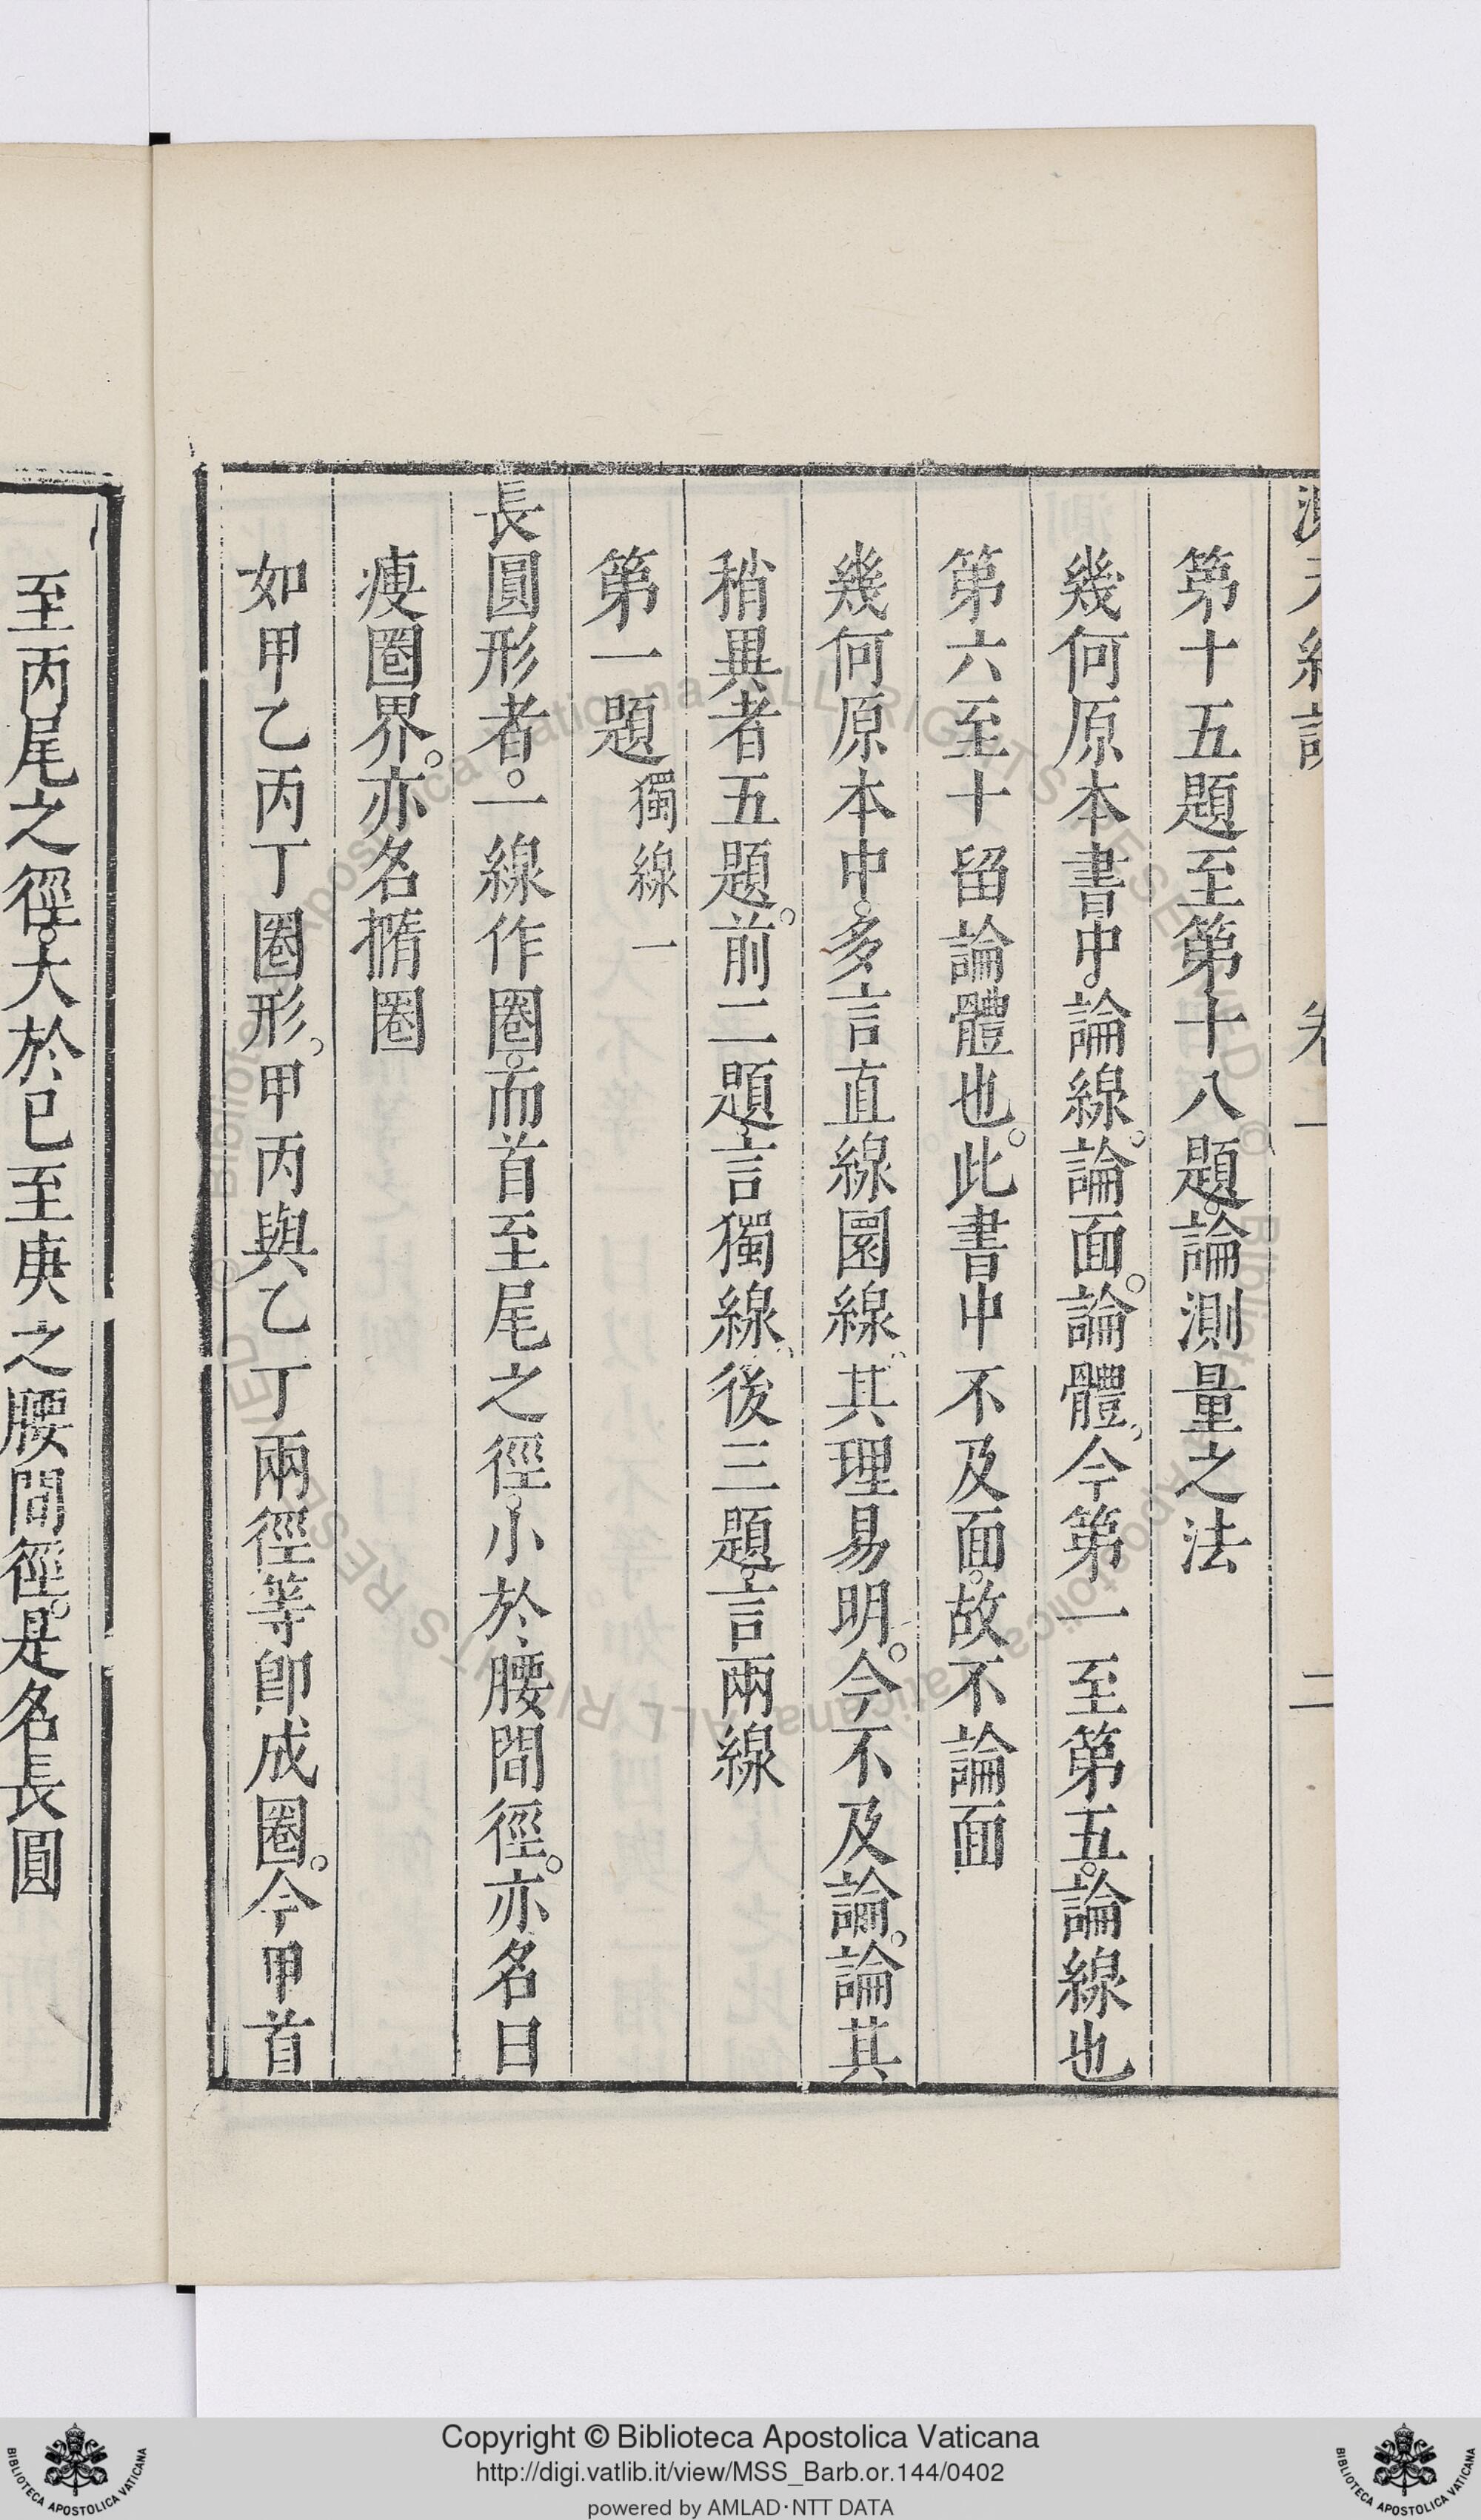 第十五題至第十八題。論測量之法
幾何原本書中。論線。論面。論體、今第一至第五。論線也
第六至十留論體也。此書中不及面。故不論面
幾何原本中。多言直線圜線、其理易明。今不及論。論其
稍異者五題。前二題、言獨線、後三題、言兩線
第一題 獨線一
長圓形者。一線作圈。而首至尾之徑。小於腰間徑。亦名曰
瘦圈界。亦名撱圈
如甲乙丙丁圈形、甲丙與乙丁兩徑等卽成圈。今甲首
至丙尾之徑。大於巳至庚之腰間徑。是名長圓
Copyright © Biblioteca Apostolica Vaticana
http://digi.vatlib.it/view/MSS_Barb.or.144/0402
powered by AMLAD·NTT DATA
BIBLIOTECA APOSTOLICA VATICANA
BIBLIOTECA APOSTOLICA VATICANA